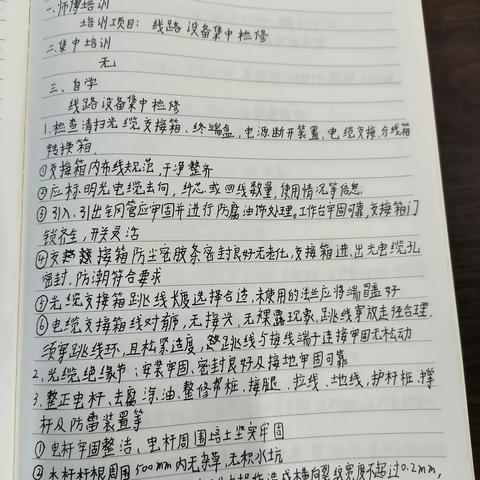 一.师傅培训
培训项目: 线路设备集中检修
二.集中培训
无
三、自学
线路设备集中检修
1.检查清扫光缆交接箱、终端盒,电源断开装置、电缆交接,分线箱
转换箱.
①交接箱内布线规范,干净整齐
②应标明光电缆去向,纤芯或回线数量,使用情况等信息.
③引入、引出钢管应牢固并进行防腐油饰处理。工作台牢固可靠,交接箱门
锁齐全,开关灵活
④交接箱防尘密胶条密封良好无老化,交接箱进、出光电缆孔
密封,防潮符合要求
⑤光缆交接箱跳线长度选择合适,未使用的法兰应将端冒盖好
⑥电缆交接箱线对有序,无接头,无裸露现象,跳线穿放走径合理,
须穿跳线环,且松紧适度,跳线与接线端子连接牢固无松动
2、光缆绝缘节:安装牢固、密封良好及接地牢固可靠
3、整正电杆、去腐涂油、整修帮桩、接腿、拉线、地线、护杆桩、撑
杆及防雷装置等
①电杆牢固整洁、电杆周围培土坚实牢固
②木杆杆根周围500mm内无杂草,无积水坑
造成横向裂纹宽度不超过0.2mm,